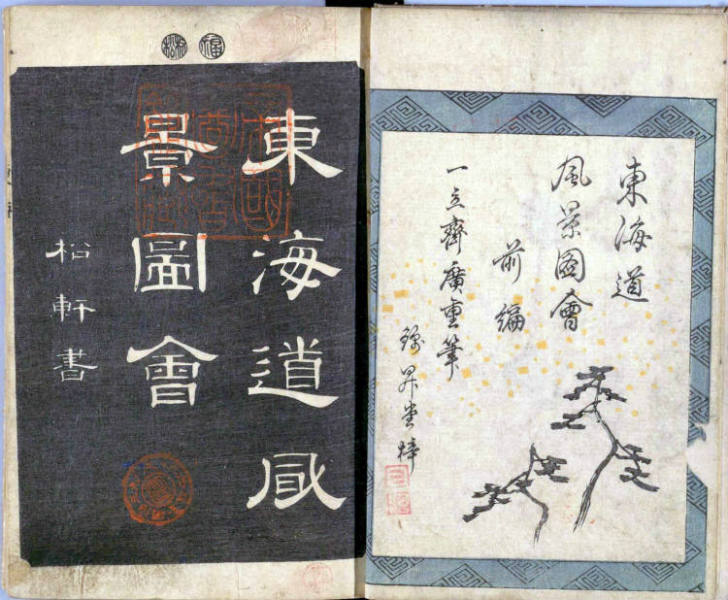 東海道
風景圖會
前編
一立齋廣重筆
錦昇堂梓
東海道風
景圖會
松軒書